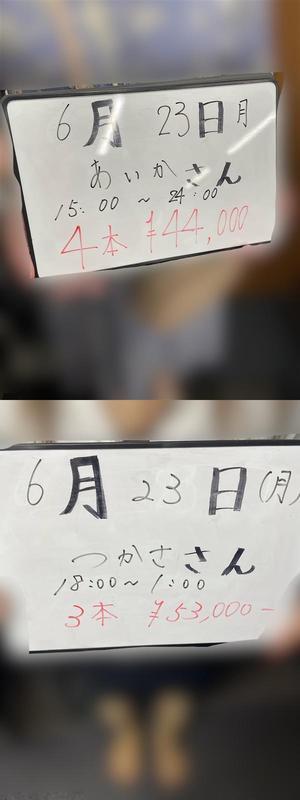 6月 23日月
あいかさん
15:00 ~ 24:00
4本 ¥44,000
6月 23日(月)
つかささん
18:00~1:00
3本 ¥53,000-